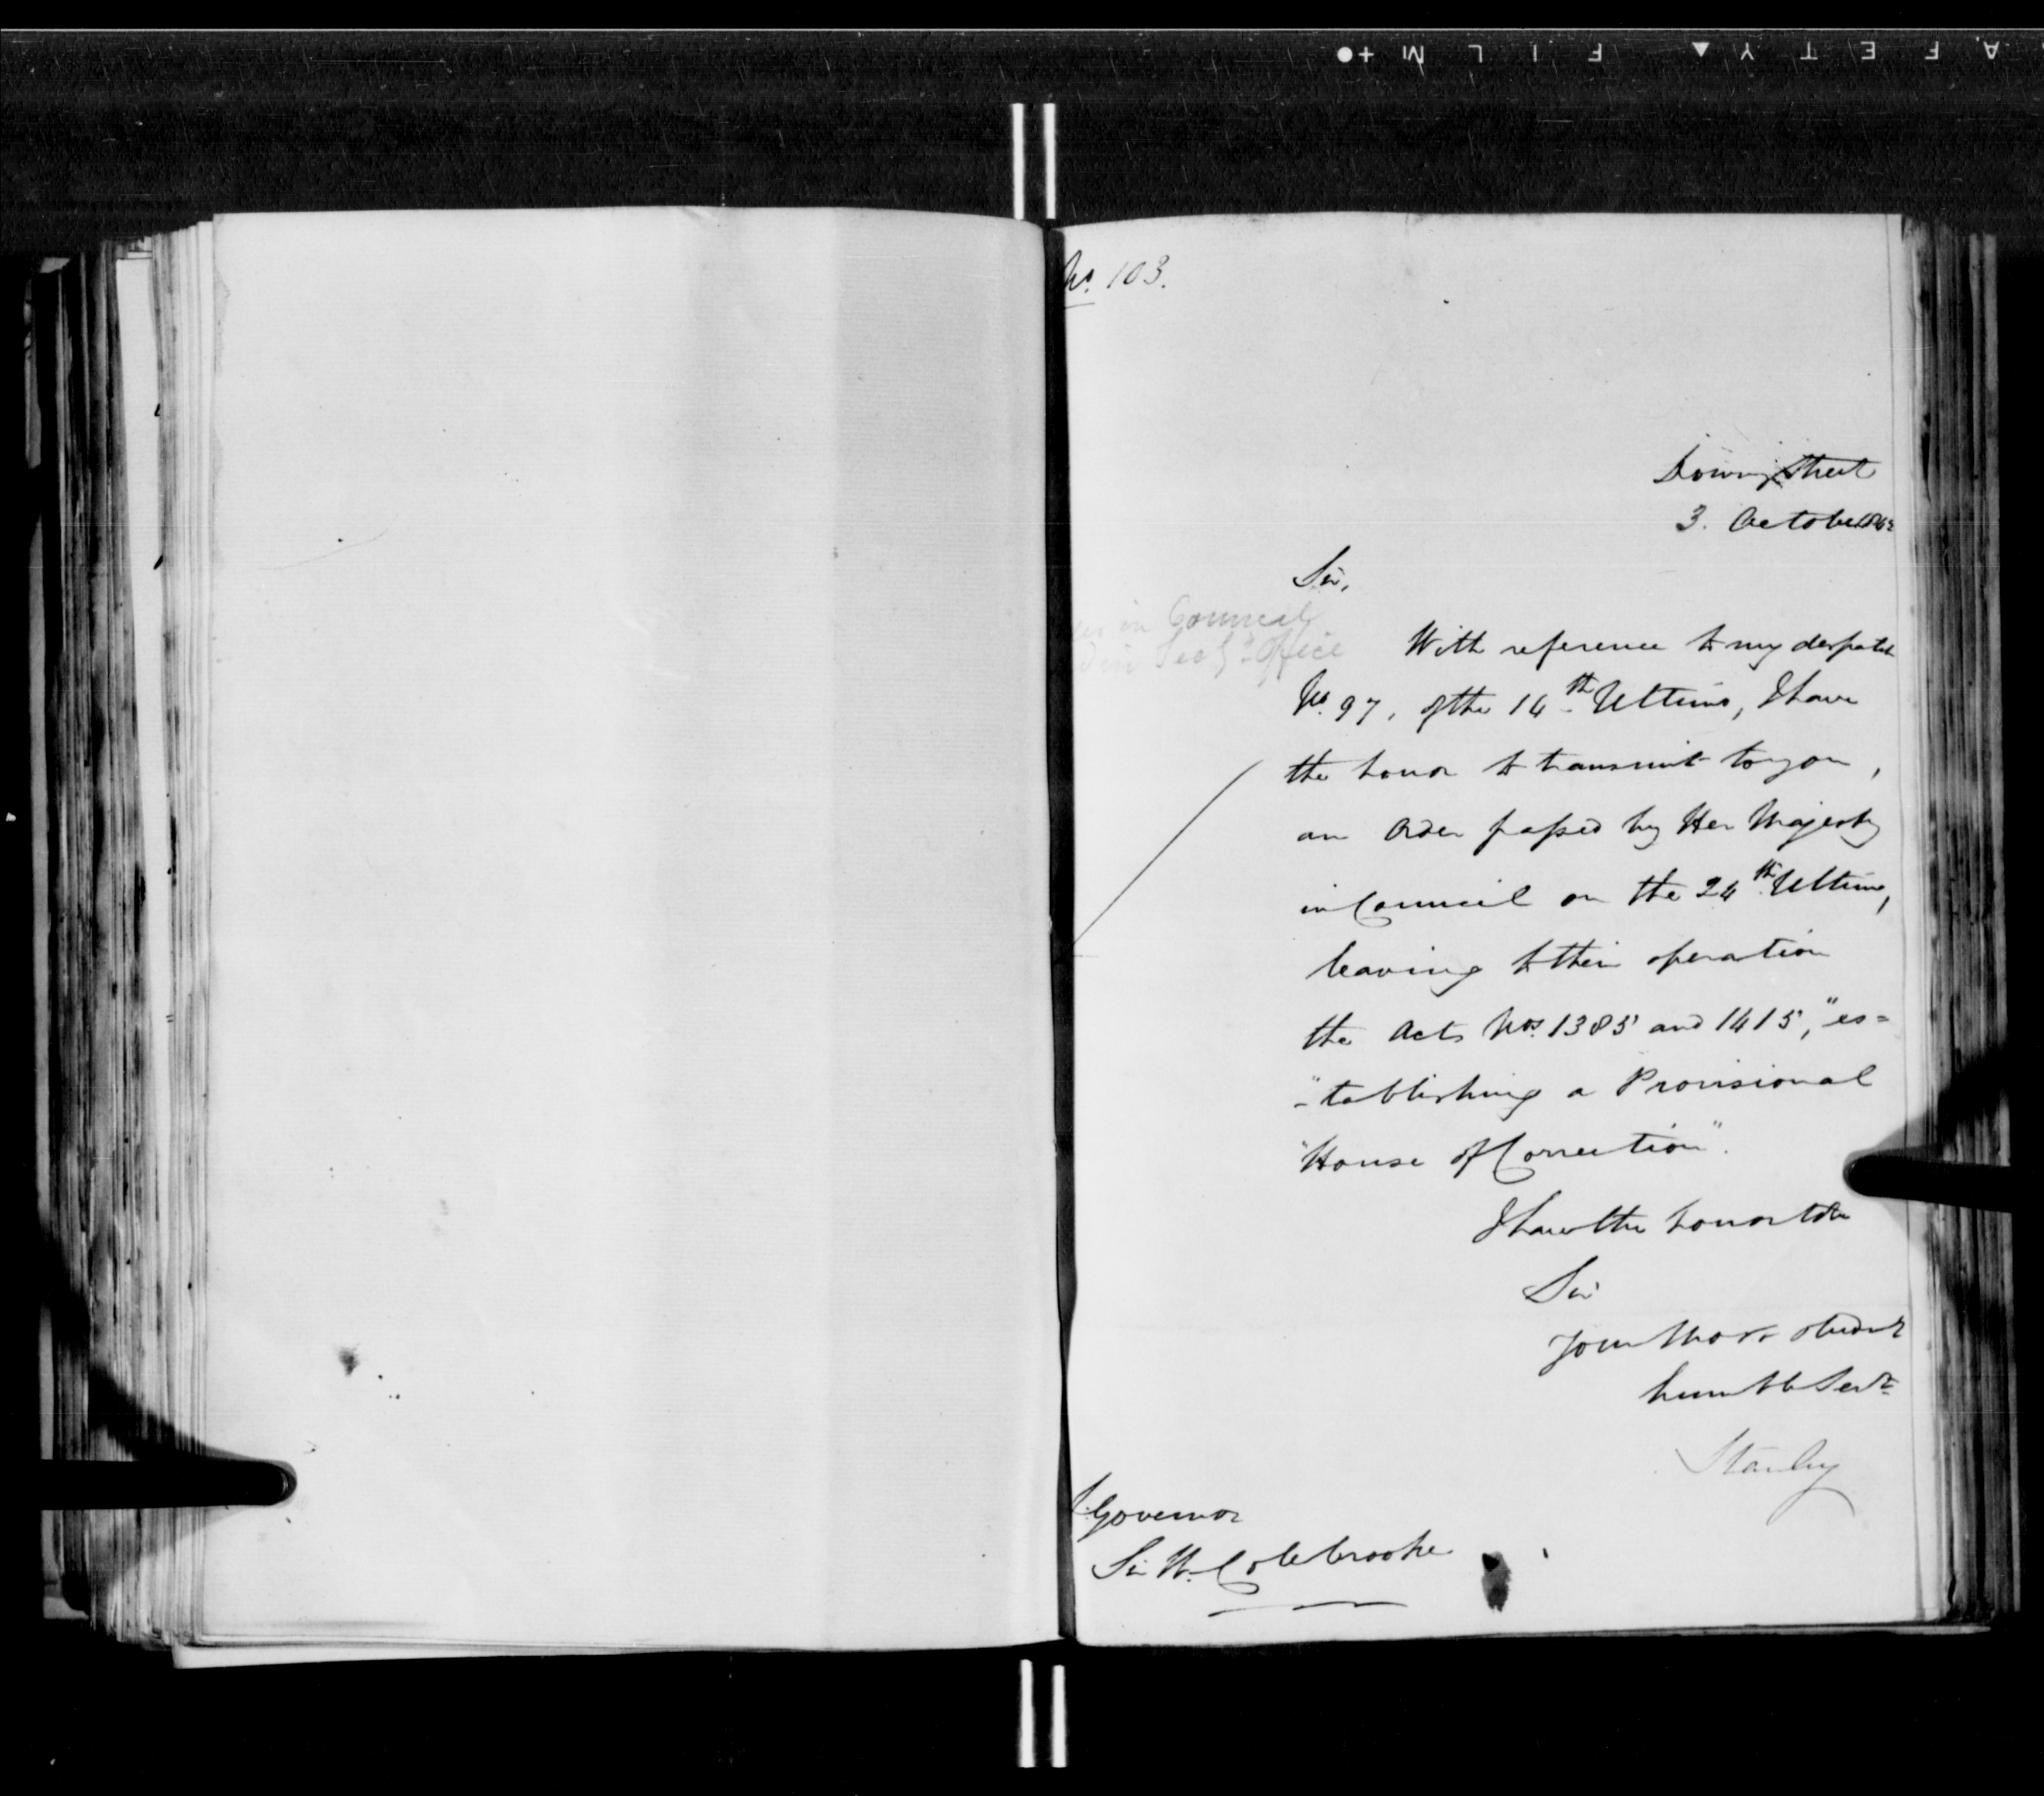 No. 103.
Downing Street
3. October 1842
Sir,
in Council
in Secy's Office
With reference to my despatch
No. 97, of the 14th Ultimo, I have
the honor to transmit to you,
an Order passed by Her Majesty
in Council on the 24th Ultimo,
leaving to their operation
the Acts Nos. 1385 and 1415, "es=
"-tablishing a Provisional
"House of Correction".
I have the honor to be
Sir
Your most obedient
humble Servt
Stanley
Governor
Sir W. Colebrooke
AFETY FILM